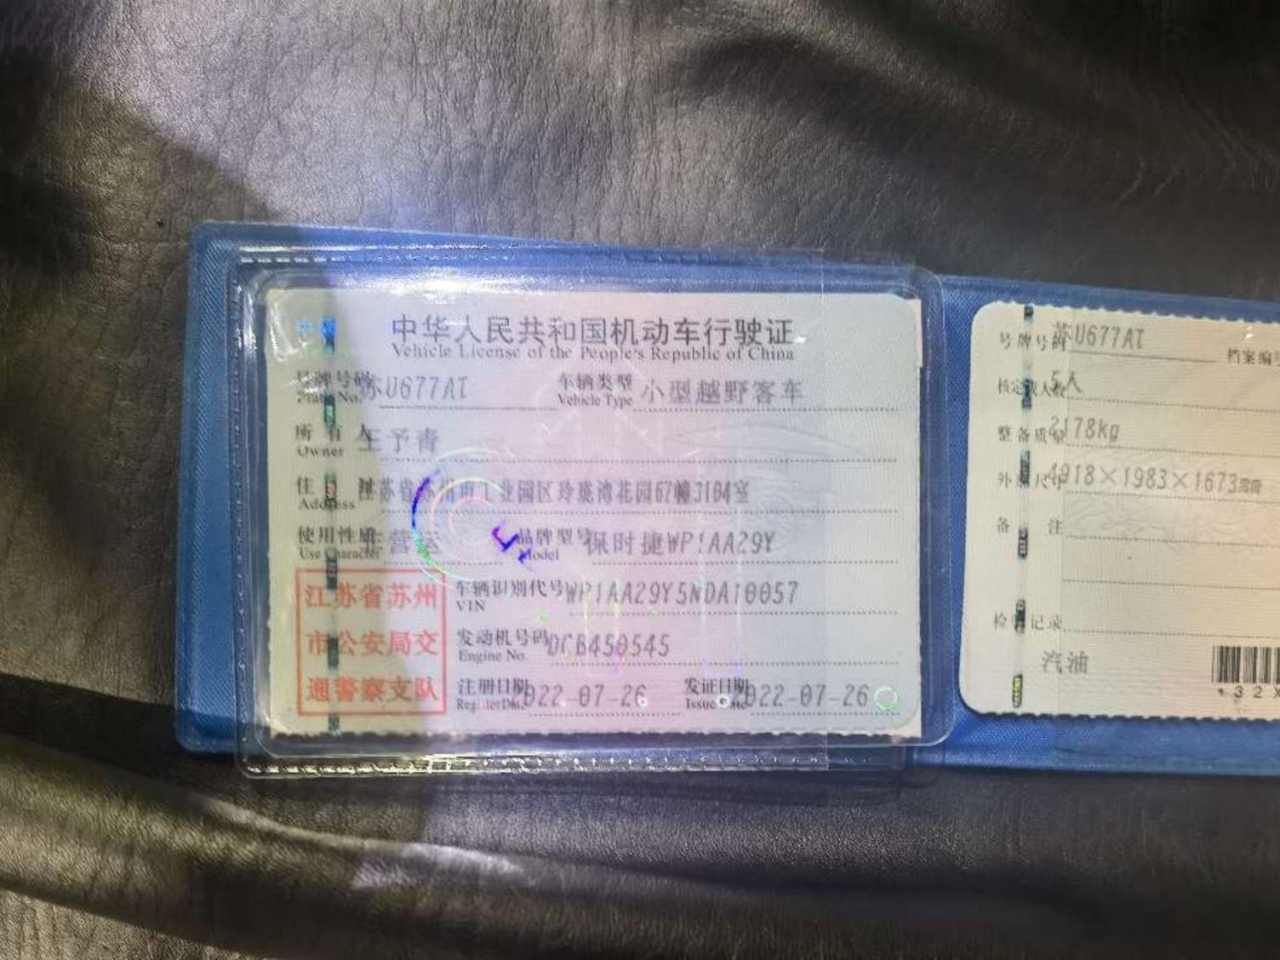 中华人民共和国机动车行驶证
Vehicle License of the People's Republic of China
号牌号码 苏U677AT 车辆类型 小型越野客车
Plate No. Vehicle Type
所有人 王予青
Owner
住址 江苏省苏州市工业园区玲珑湾花园67幢3104室
Address
使用性质 营运 品牌型号 保时捷WP1AA29Y
Use Character Model
江苏省苏州
市公安局交
通警察支队
车辆识别代号 WP1AA29Y5NDA10057
VIN
发动机号码 DCB450545
Engine No.
注册日期 022-07-26 发证日期 2022-07-26
Register Date Issue Date
号牌号码 苏U677AT 档案编
核定载人数 5人
整备质量 2178kg
外廓尺寸 4918×1983×1673
备注
检验记录
汽油